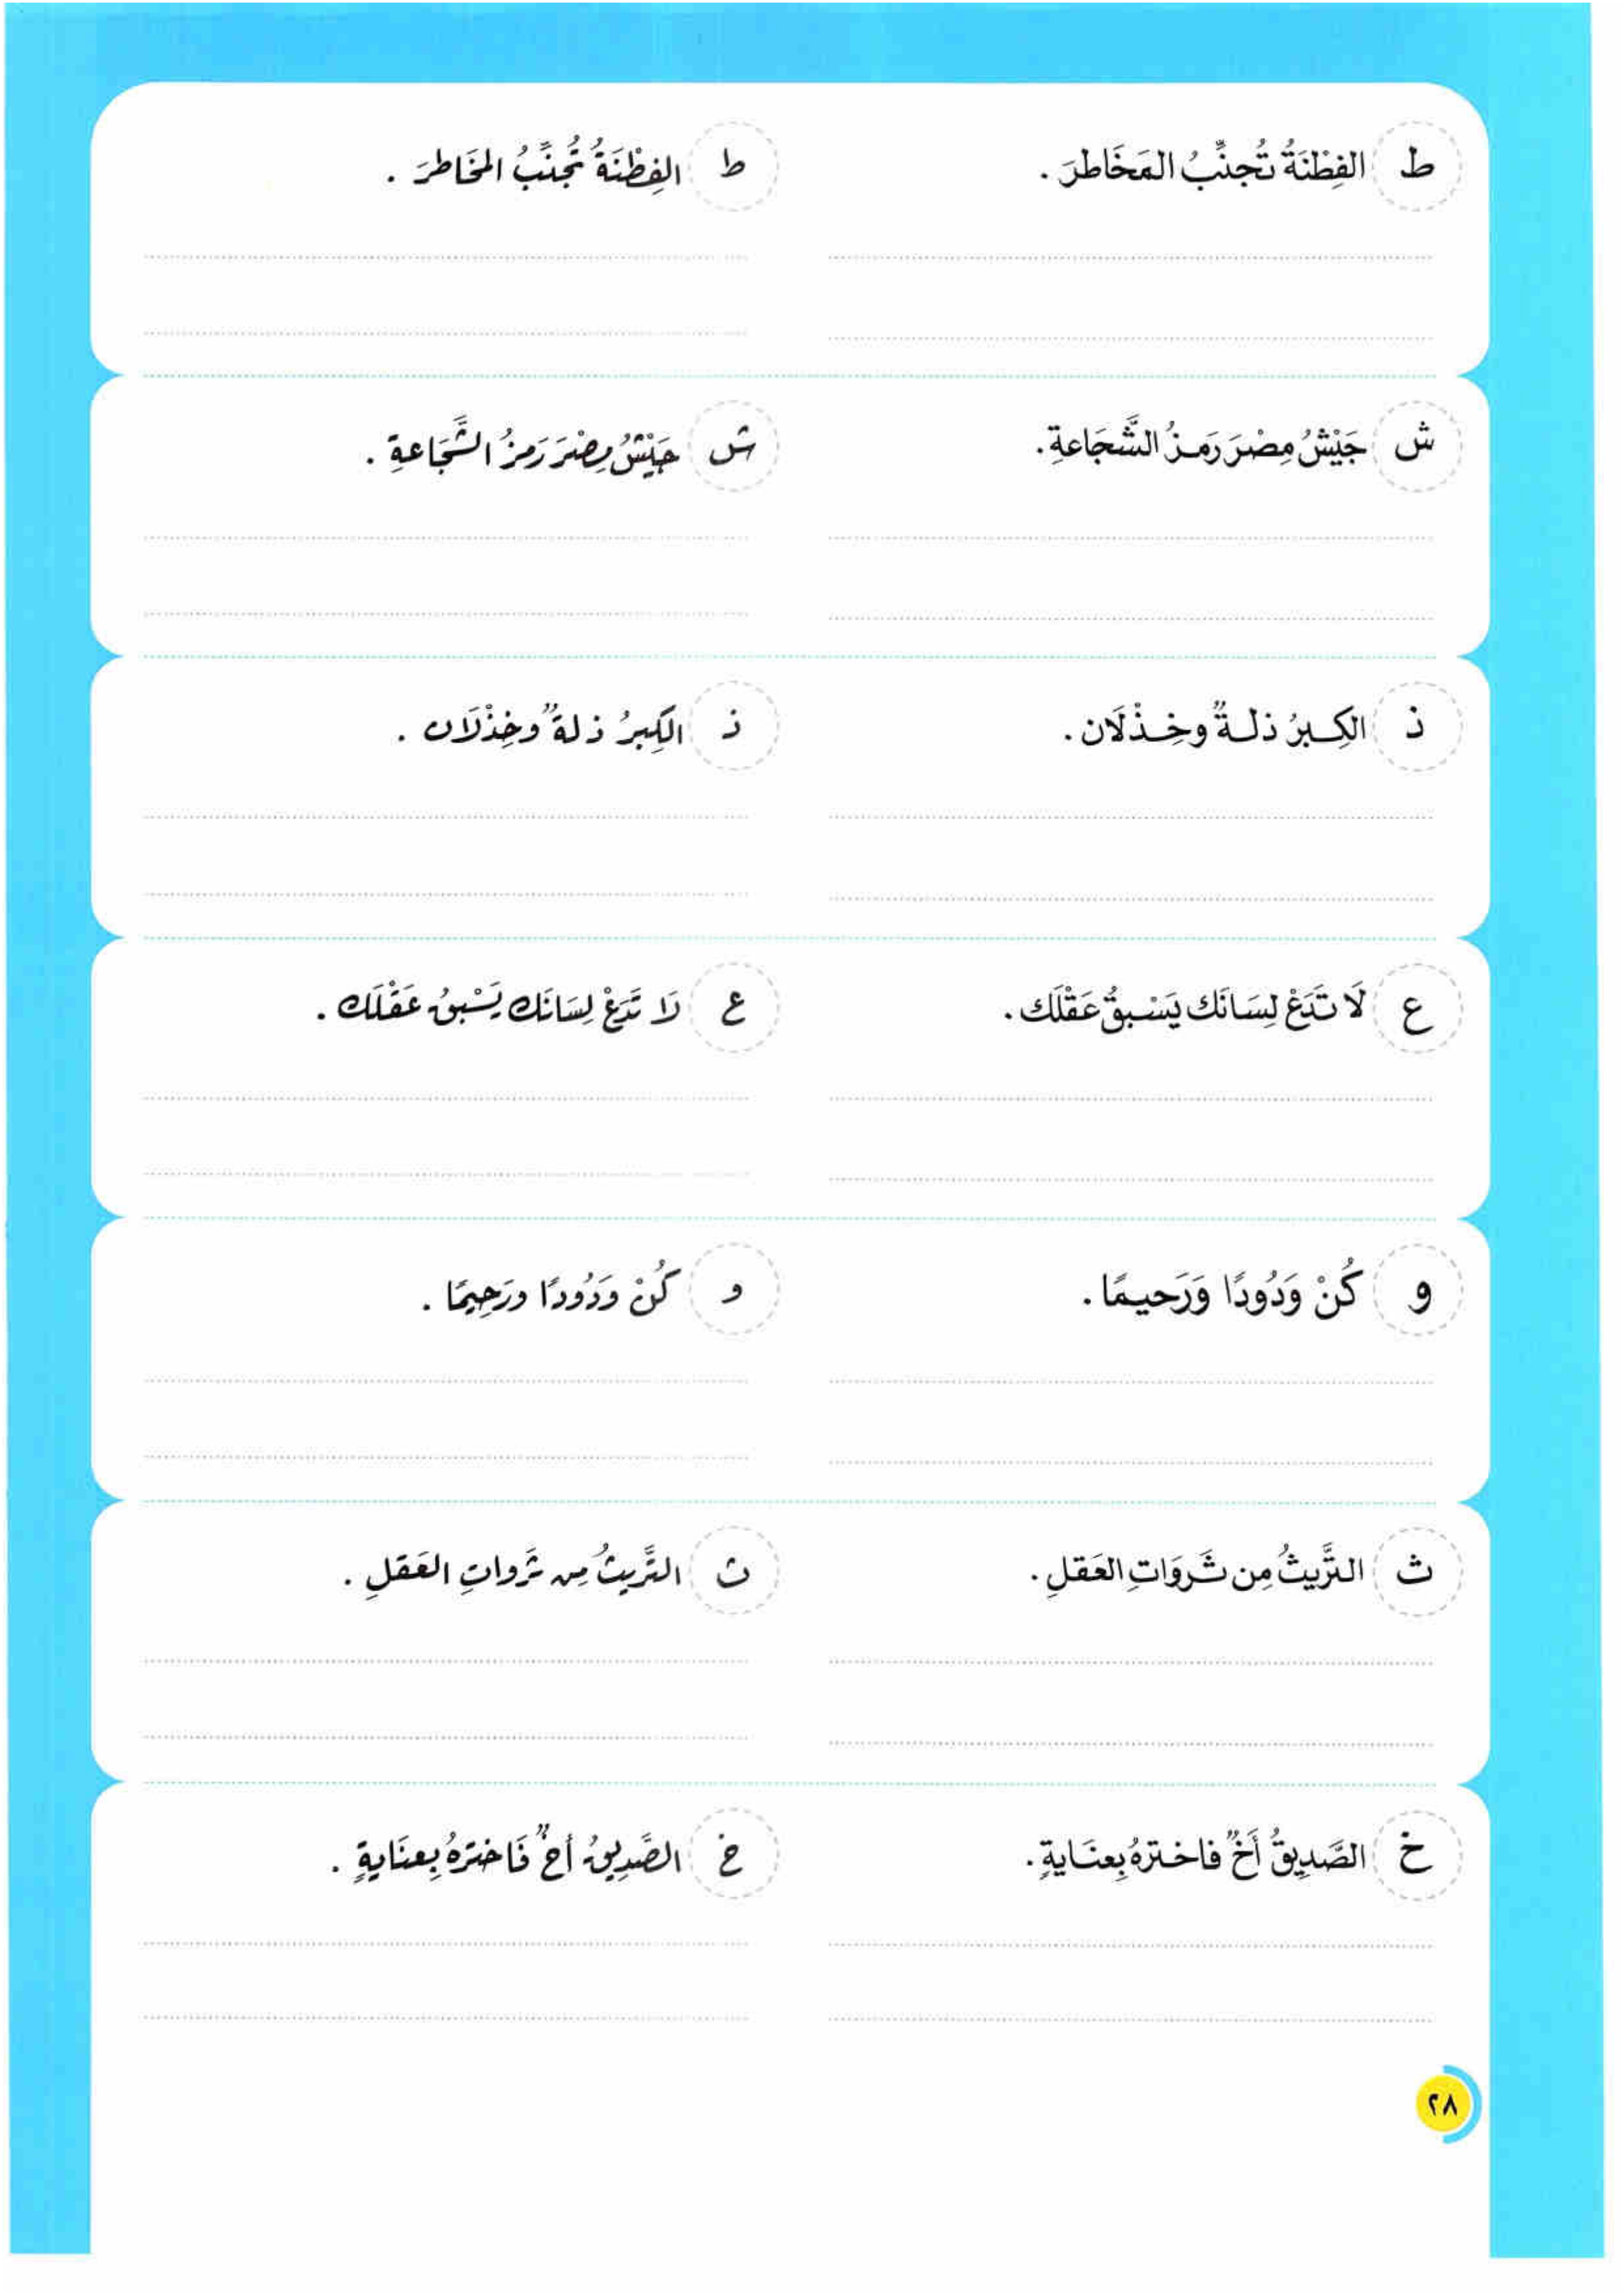 ط الفِطْنَةُ تُجنِّبُ المَخَاطرَ .
ط الفِطْنَةُ تُجنِّبُ المَخَاطرَ .
ش جَيْشُ مِصْرَ رَمـزُ الشَّجَاعةِ .
ش جَيْشُ مِصْرَ رَمزُ الشَّجَاعةِ .
ذ الكِـبرُ ذلـةٌ وخِـذْلَان .
ذ الكِبرُ ذلةٌ وخِذْلَان .
ع لَا تَدَعْ لِسَانَك يَسْبقُ عَقْلَك .
ع لَا تَدَعْ لِسَانَك يَسْبقُ عَقْلَك .
و كُنْ وَدُودًا وَرَحيـمًا .
و كُنْ وَدُودًا ورَحِيمًا .
ث التَّريثُ مِن ثَـروَاتِ العَقلِ .
ث التَّريثُ مِن ثَرواتِ العَقلِ .
خ الصَّديِقُ أَخٌ فاخـترهُ بِعنَـايةٍ .
خ الصَّديِقُ أخٌ فَاخترهُ بِعنَايةٍ .
٢٨